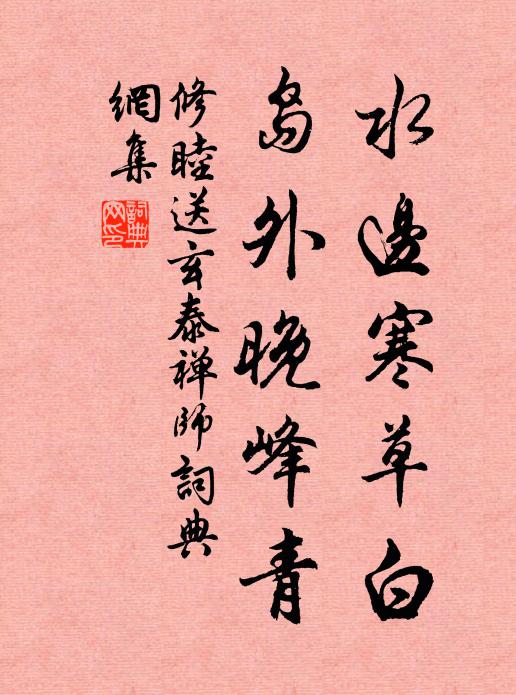 水邊寒草白
島外晚峰青
修睦送玄泰禅師詞典
網集
詞典
网印